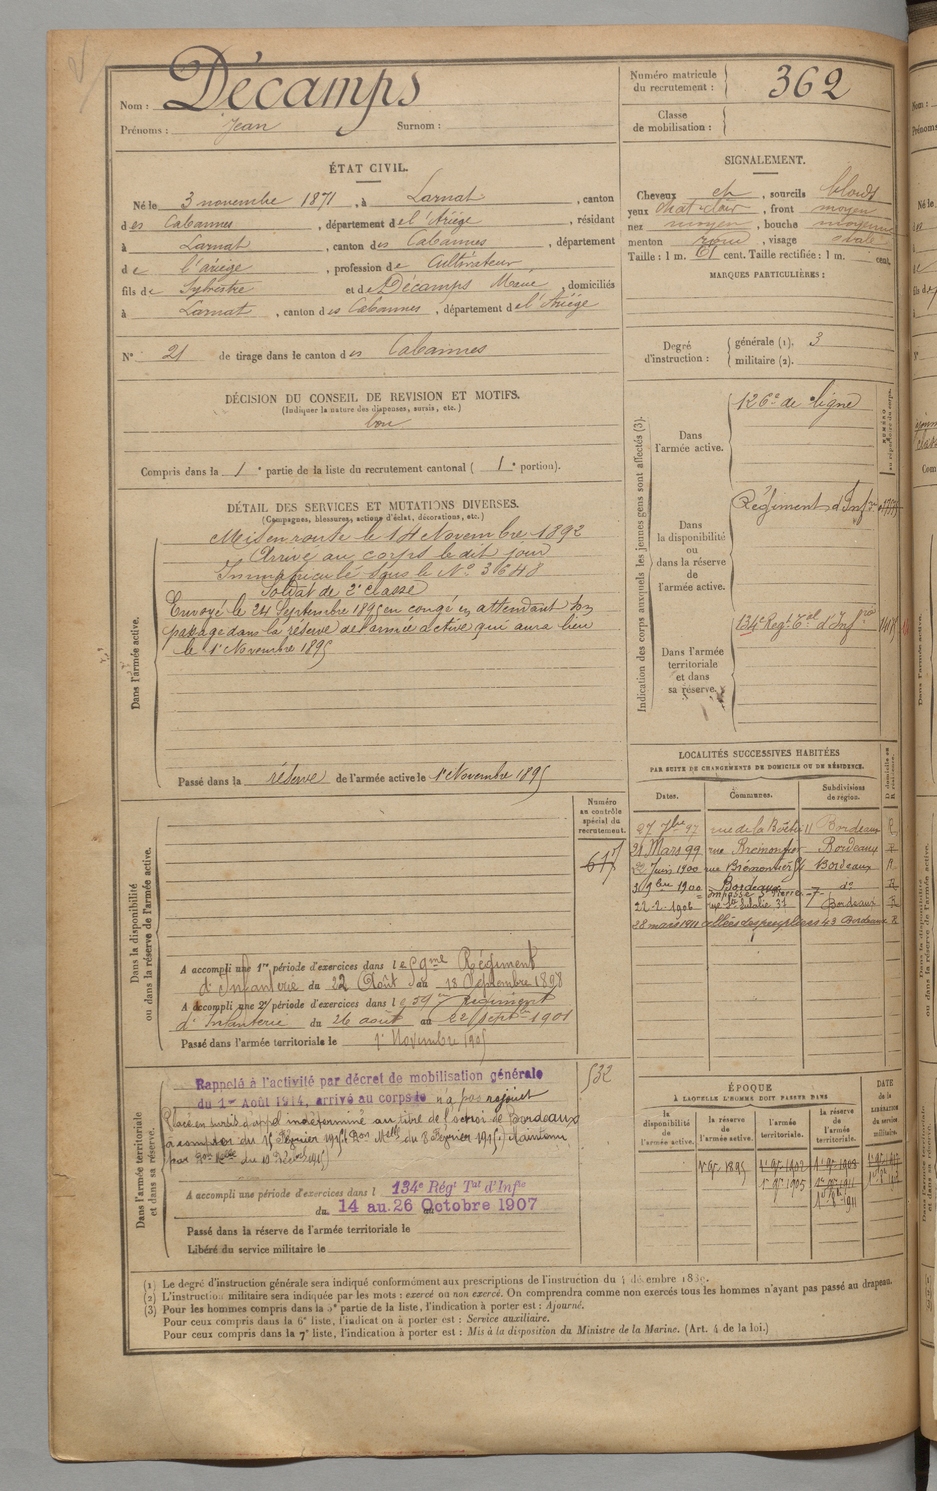 Nom : Décamps
Prénoms : Jean Surnom :
Numéro matricule du recrutement : 362
Classe de mobilisation :
ÉTAT CIVIL.
Né le 3 novembre 1871, à Larnat, canton
des Cabannes, département de l'Ariège, résidant
à Larnat, canton des Cabannes, département
de l'ariège, profession de Cultivateur
fils de Sylvestre et de Décamps Marie, domiciliés
à Larnat, canton des Cabannes, département de l'Ariège
N° 21 de tirage dans le canton des Cabannes
SIGNALEMENT.
Cheveux ch, sourcils blonds
yeux chat clair, front moyen
nez moyen, bouche moyenne
menton rond, visage ovale
Taille : 1 m. 61 cent. Taille rectifiée : 1 m. cent.
MARQUES PARTICULIÈRES :
Degré d'instruction : générale (1). 3
militaire (2).
DÉCISION DU CONSEIL DE REVISION ET MOTIFS.
(Indiquer la nature des dispenses, sursis, etc.)
bon
Compris dans la 1e partie de la liste du recrutement cantonal ( 1e portion).
DÉTAIL DES SERVICES ET MUTATIONS DIVERSES.
(Campagnes, blessures, actions d'éclat, décorations, etc.)
Dans l'armée active.
Mis en route le 14 Novembre 1892
Arrivé au corps le dit jour
Immatriculé sous le N° 3648
Soldat de 2e classe
Envoyé le 24 Septembre 1895 en congé en attendant son
passage dans la réserve de l'armée active qui aura lieu
le 1er Novembre 1895
Passé dans la réserve de l'armée active le 1er Novembre 1895
Indication des corps auxquels les jeunes gens sont affectés (3).
Dans l'armée active.
126e de ligne
Dans la disponibilité ou dans la réserve de l'armée active.
Régiment d'Inf
Dans l'armée territoriale et dans sa réserve.
134e Regt Tal d'Infrie
LOCALITÉS SUCCESSIVES HABITÉES
PAR SUITE DE CHANGEMENTS DE DOMICILE OU DE RÉSIDENCE.
Dates. Communes. Subdivisions de région. D domicile ou R résidence.
27 7bre 97 rue de la Boëtie 11 Bordeaux R
31 Mars 99 rue Bremontier Bordeaux R
Juin 1900 rue Brémontier Bordeaux R
3 9bre 1900 Bordeaux do R
impasse St Pierre 7
22-2-1906 rue Ste Eulalie 31 Bordeaux R
28 mars 1911 allées des peupliers 43 Bordeaux R
Dans la disponibilité ou dans la réserve de l'armée active.
Numéro au contrôle spécial du recrutement.
A accompli une 1re période d'exercices dans le 59me Régiment
d'Infanterie du 22 Août au 18 Septembre 1898
A accompli une 2e période d'exercices dans le 59e Régiment
d'Infanterie du 26 août au 22 septbre 1901
Passé dans l'armée territoriale le 1er Novembre 1905
Dans l'armée territoriale et dans sa réserve.
532
Rappelé à l'activité par décret de mobilisation générale
du 1er Août 1914, arrivé au corps le n'a pas rejoint
Placé en sursis d'appel indéterminé au titre de l'octroi de Bordeaux
à compter du 15 Février 1915 (Don Melle du 8 Février 1915.) Maintenu
A accompli une période d'exercices dans l 134e Régt Tal d'Infie
du 14 au 26 Octobre 1907
Passé dans la réserve de l'armée territoriale le
Libéré du service militaire le
ÉPOQUE
À LAQUELLE L'HOMME DOIT PASSER DANS
la disponibilité de l'armée active. la réserve de l'armée active. l'armée territoriale. la réserve de l'armée territoriale. DATE de la LIBÉRATION du service militaire.
1er 9bre 1895 1er 9bre 1902 1er 9bre 1908
1er 9bre 1905 1er 9bre 1911
(1) Le degré d'instruction générale sera indiqué conformément aux prescriptions de l'instruction du 4 décembre 1889.
(2) L'instruction militaire sera indiquée par les mots : exercé ou non exercé. On comprendra comme non exercés tous les hommes n'ayant pas passé au drapeau.
(3) Pour les hommes compris dans la 5e partie de la liste, l'indication à porter est : Ajourné.
Pour ceux compris dans la 6e liste, l'indication à porter est : Service auxiliaire.
Pour ceux compris dans la 7e liste, l'indication à porter est : Mis à la disposition du Ministre de la Marine. (Art. 4 de la loi.)